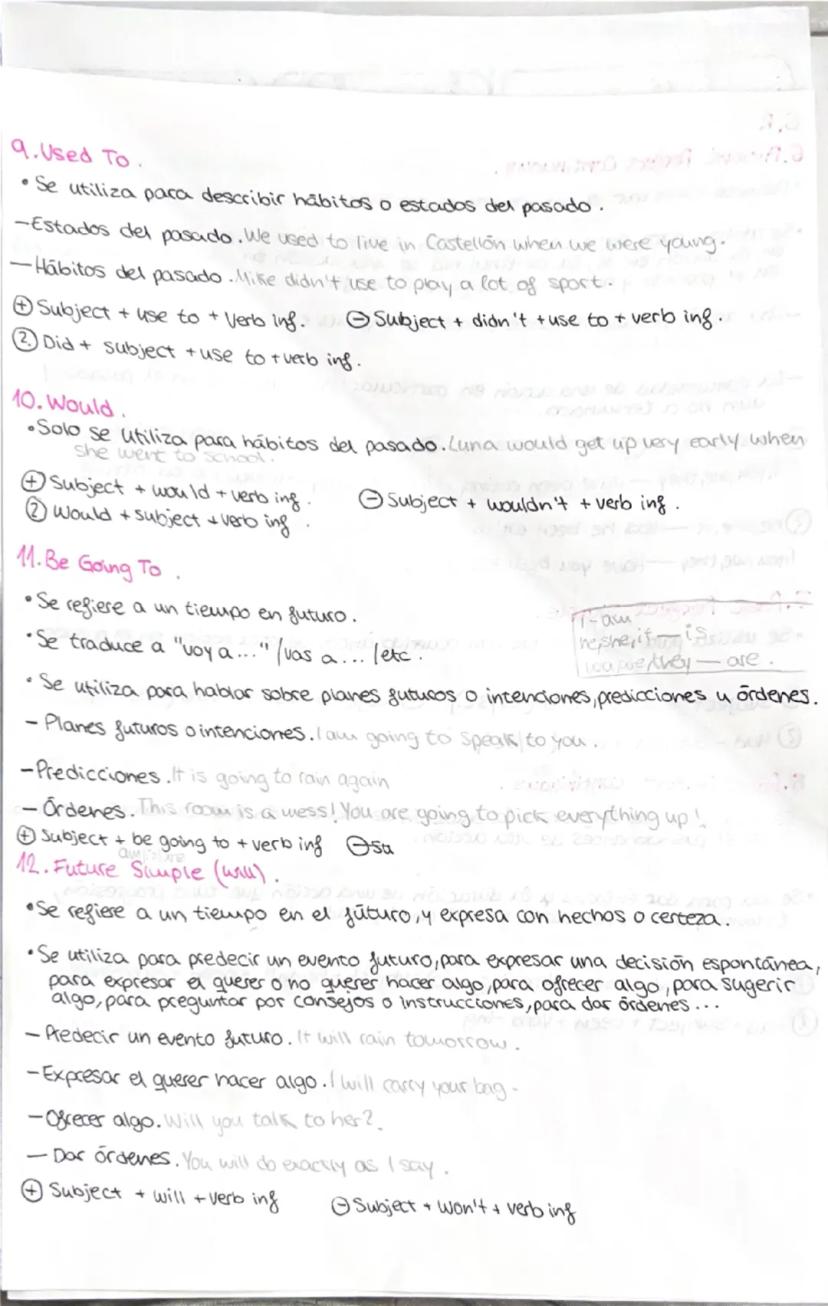 9. Used To.
• Se utiliza para describir hábitos o estados del pasado.
— Estados del pasado. We used to live in Castellón when we were young.
— Hábitos del pasado. Mike didn't use to play a lot of sport.
⊕ Subject + use to + Verb inf. ⊖ Subject + didn't + use to + verb inf.
② Did + subject + use to + verb inf.
10. Would.
• Solo se utiliza para hábitos del pasado. Luna would get up very early when
she went to school.
⊕ Subject + would + verb inf. ⊖ Subject + wouldn't + verb inf.
② Would + subject + verb inf.
11. Be Going To.
• Se refiere a un tiempo en futuro.
I — am
he, she, it — is
• Se traduce a "voy a..." / vas a... / etc.
we / they — are.
• Se utiliza para hablar sobre planes futuros o intenciones, predicciones y órdenes.
— Planes futuros o intenciones. I am going to speak to you.
— Predicciones. It is going to rain again
— Órdenes. This room is a mess! You are going to pick everything up!
⊕ Subject + be going to + verb inf ⊖ Su
12. Future Simple (will).
• Se refiere a un tiempo en el futuro, y expresa con hechos o certeza.
• Se utiliza para predecir un evento futuro, para expresar una decisión espontánea,
para expresar el querer o no querer hacer algo, para ofrecer algo, para sugerir
algo, para preguntar por consejos o instrucciones, para dar órdenes...
— Predecir un evento futuro. It will rain tomorrow.
— Expresar el querer hacer algo. I will carry your bag.
— Ofrecer algo. Will you talk to her?.
— Dar órdenes. You will do exactly as I say.
⊕ Subject + will + verb inf ⊖ Subject + won't + verb inf